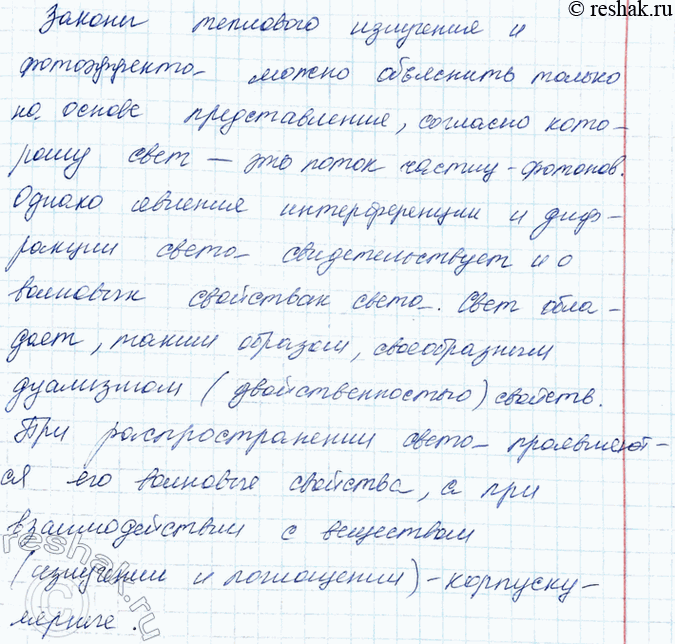 © reshak.ru
Законы теплового излучения и
фотоэффекта можно объяснить только
на основе представления, согласно кото-
рому свет — это поток частиц-фотонов.
Однако явления интерференции и диф-
ракции света свидетельствует и о
волновых свойствах света. Свет обла-
дает, таким образом, своеобразным
дуализмом (двойственностью) свойств.
При распространении света проявляют-
ся его волновые свойства, а при
взаимодействии с веществом
(излучении и поглощении) - корпуску-
лярные.
© reshak.ru